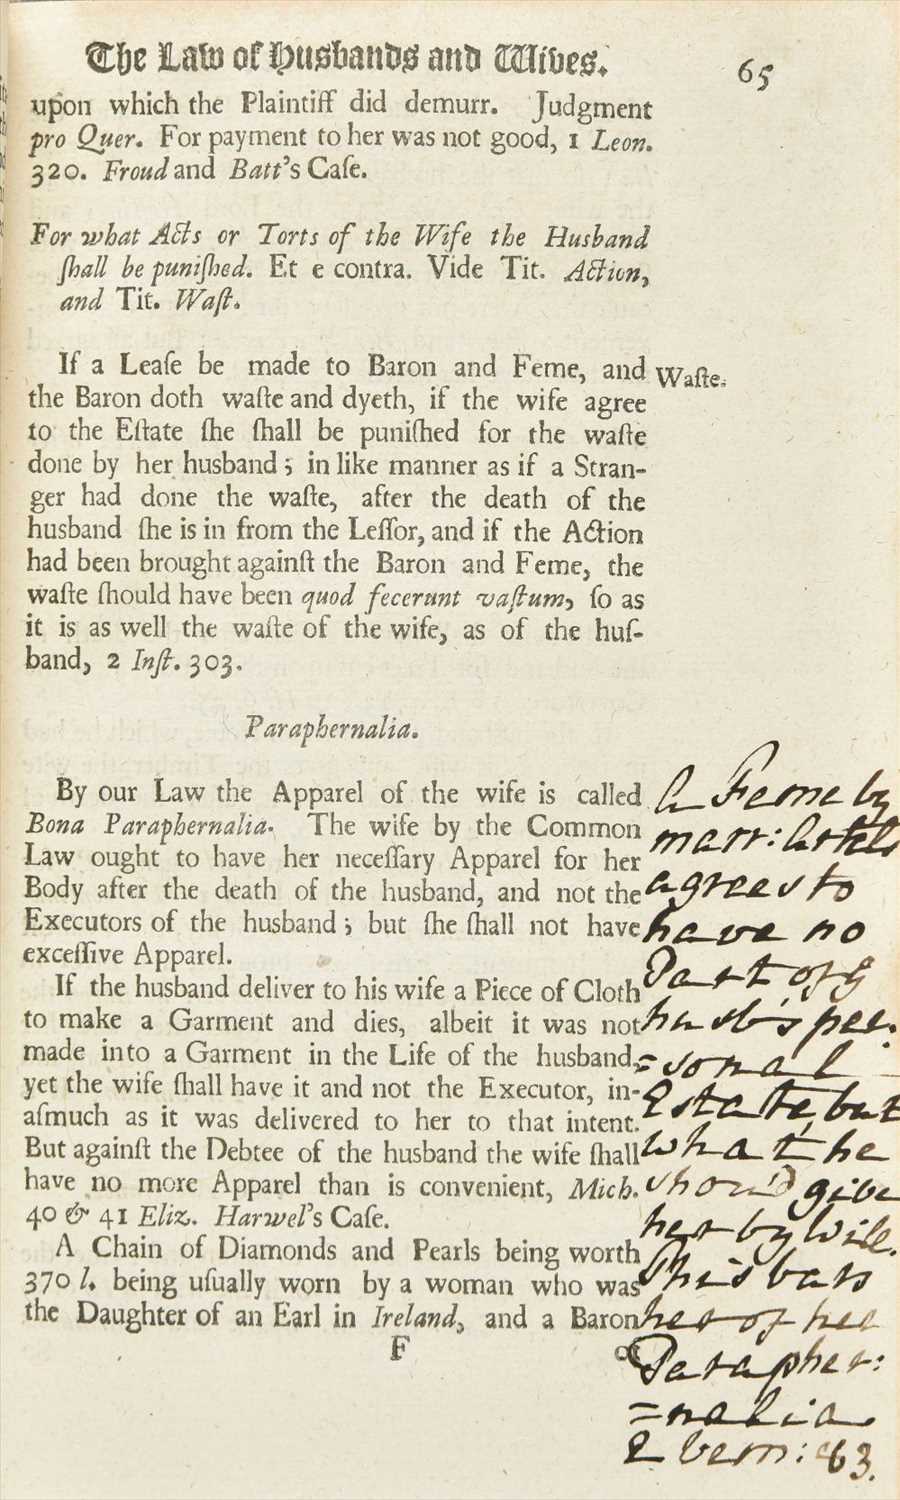 The Law of Husbands and Wives. 65
upon which the Plaintiff did demurr. Judgment
pro Quer. For payment to her was not good, 1 Leon.
320. Froud and Batt's Caſe.
For what Acts or Torts of the Wife the Husband
ſhall be puniſhed. Et e contra. Vide Tit. Action,
and Tit. Waſt.
If a Leaſe be made to Baron and Feme, and
Waſte.
the Baron doth waſte and dyeth, if the wife agree
to the Eſtate ſhe ſhall be puniſhed for the waſte
done by her husband; in like manner as if a Stran-
ger had done the waſte, after the death of the
husband ſhe is in from the Leſſor, and if the Action
had been brought againſt the Baron and Feme, the
waſte ſhould have been quod fecerunt vaſtum, ſo as
it is as well the waſte of the wife, as of the huſ-
band, 2 Inſt. 303.
Paraphernalia.
By our Law the Apparel of the wife is called
Bona Paraphernalia. The wife by the Common
Law ought to have her neceſſary Apparel for her
Body after the death of the husband, and not the
Executors of the husband; but ſhe ſhall not have
exceſſive Apparel.
If the husband deliver to his wife a Piece of Cloth
to make a Garment and dies, albeit it was not
made into a Garment in the Life of the husband,
yet the wife ſhall have it and not the Executor, in-
aſmuch as it was delivered to her to that intent.
But againſt the Debtee of the husband the wife ſhall
have no more Apparel than is convenient, Mich.
40 & 41 Eliz. Harwel's Caſe.
A Chain of Diamonds and Pearls being worth
370 l. being uſually worn by a woman who was
the Daughter of an Earl in Ireland, and a Baron
F
a Feme by
marr: Artcls
agrees to
have no
Part of
husb's per:
=sonal
Estate, but
what he
shou'd give
her by Will.
This bars
her of her
Parapher:
=nalia.
2 Vern: 83.